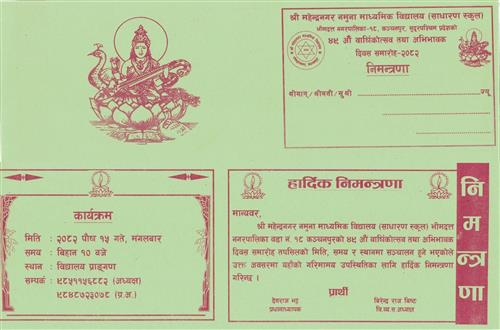 श्री महेन्द्रनगर नमुना माध्यमिक विद्यालय (साधारण स्कुल)
भीमदत्त नगरपालिका-१८, कञ्चनपुर, सुदूरपश्चिम प्रदेशको
४५ औं वार्षिकोत्सव तथा अभिभावक
दिवस समारोह-२०८२
निमन्त्रणा
श्रीमान्/श्रीमती/सुश्री ज्यू
कार्यक्रम
मिति : २०८२ पौष १५ गते, मंगलबार
समय : बिहान १० बजे
स्थान : विद्यालय प्राङ्गण
सम्पर्क : ९८५११५६८८२ (अध्यक्ष)
९८४८७२३०७८ (प्र.अ.)
हार्दिक निमन्त्रणा
मान्यवर,
श्री महेन्द्रनगर नमुना माध्यमिक विद्यालय (साधारण स्कुल) भीमदत्त
नगरपालिका वडा नं. १८ कञ्चनपुरको ४५ औं वार्षिकोत्सव तथा अभिभावक
दिवस समारोह तपसिलको मिति, समय र स्थानमा सञ्चालन हुने भएकोले
उक्त अवसरमा यहाँको गरिमामय उपस्थितिका लागि हार्दिक निमन्त्रणा
गरिन्छ ।
प्रार्थी
देशराज भट्ट
प्रधानाध्यापक
बिरेन्द्र राज बिष्ट
वि.व्य.स.अध्यक्ष
नि
म
न्त्र
णा